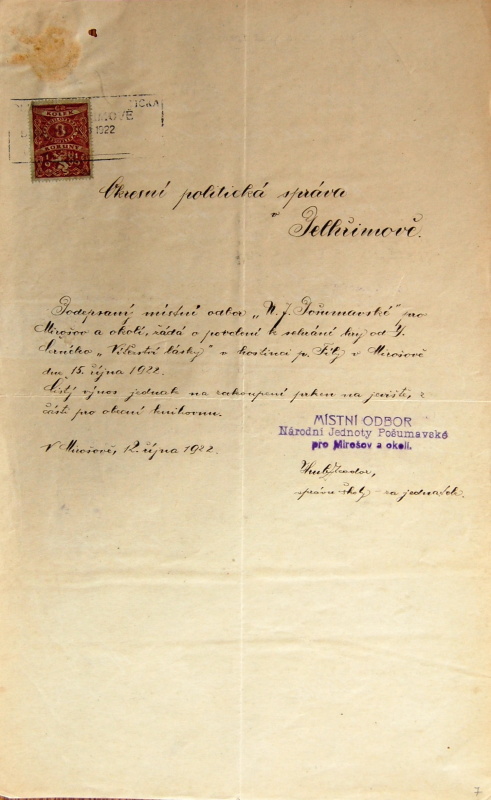 KOLEK
3
KORUNY
1922
Okresní politická správa
v
Pelhřimově.
Podepsaný místní odbor „N. J. Pošumavské" pro
Mirošov a okolí, žádá o povolení k sehrání hry od
"Vítězství lásky" v hostinci p. v Mirošově
dne 15. října 1922.
Čistý výnos jednak na zakoupení prken na jeviště, z
části pro obecní knihovnu.
V Mirošově, 12. října 1922.
MÍSTNÍ ODBOR
Národní Jednoty Pošumavské
pro Mirošov a okolí.
správce školy - za jednatele.
7